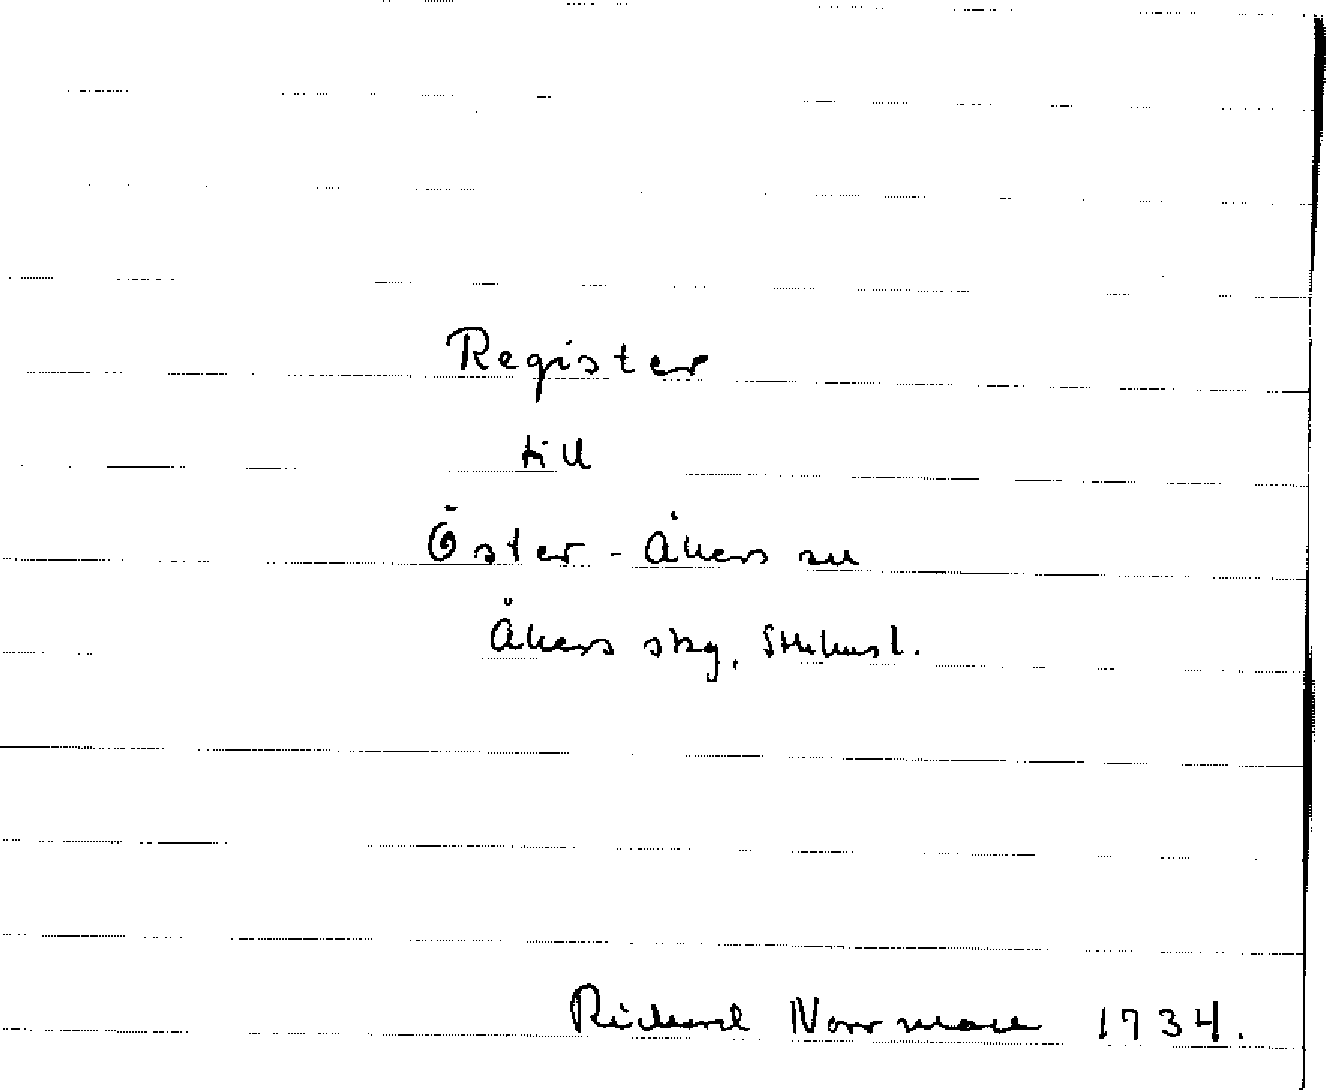 Register
till
Öster-Åkers sn
Åkers skg, Sthlms l.
Richard Norrman 1934.